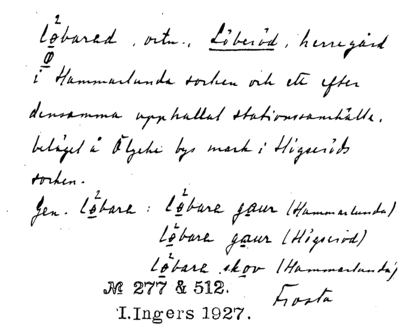 lø²barad, ortn., Löberöd, herregård
i Hammarlunda socken och ett efter
densamma uppkallat stationssamhälle,
beläget å Ölycke bys mark i Högseröds
socken.
Gen. lø²bara : lø²bara gaur (Hammarlunda)
lø²bara gaur (Högseröd)
lø²bara skov (Hammarlunda)
№ 277 & 512. Frosta
I. Ingers 1927.